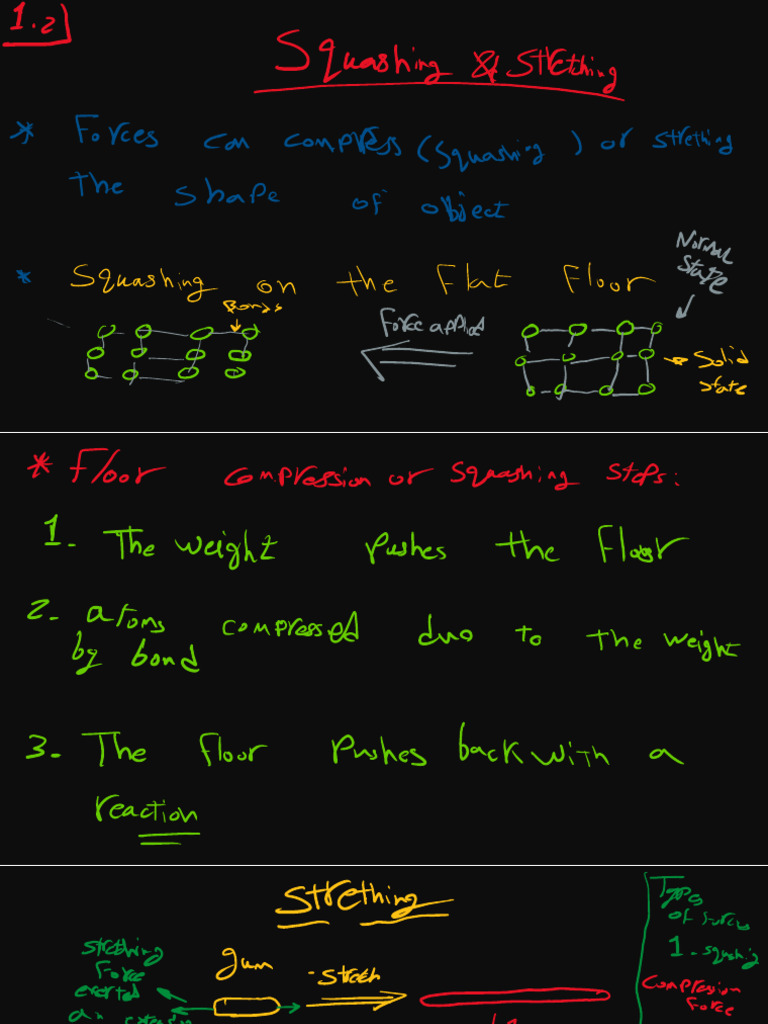 1.2
Squashing & Stretching
* Forces can compress (squashing) or strething
the shape of object
* Squashing on the flat floor
Normal
state
Bonds
Force applied
Solid
state
* Floor compression or squashing steps:
1. The weight pushes the floor
2. atoms compressed duo to the weight
by bond
3. The floor pushes back with a
reaction
Strething
strething
force
exerted
an
gum
Stretch
Types
of
1. squashing
Compression
force